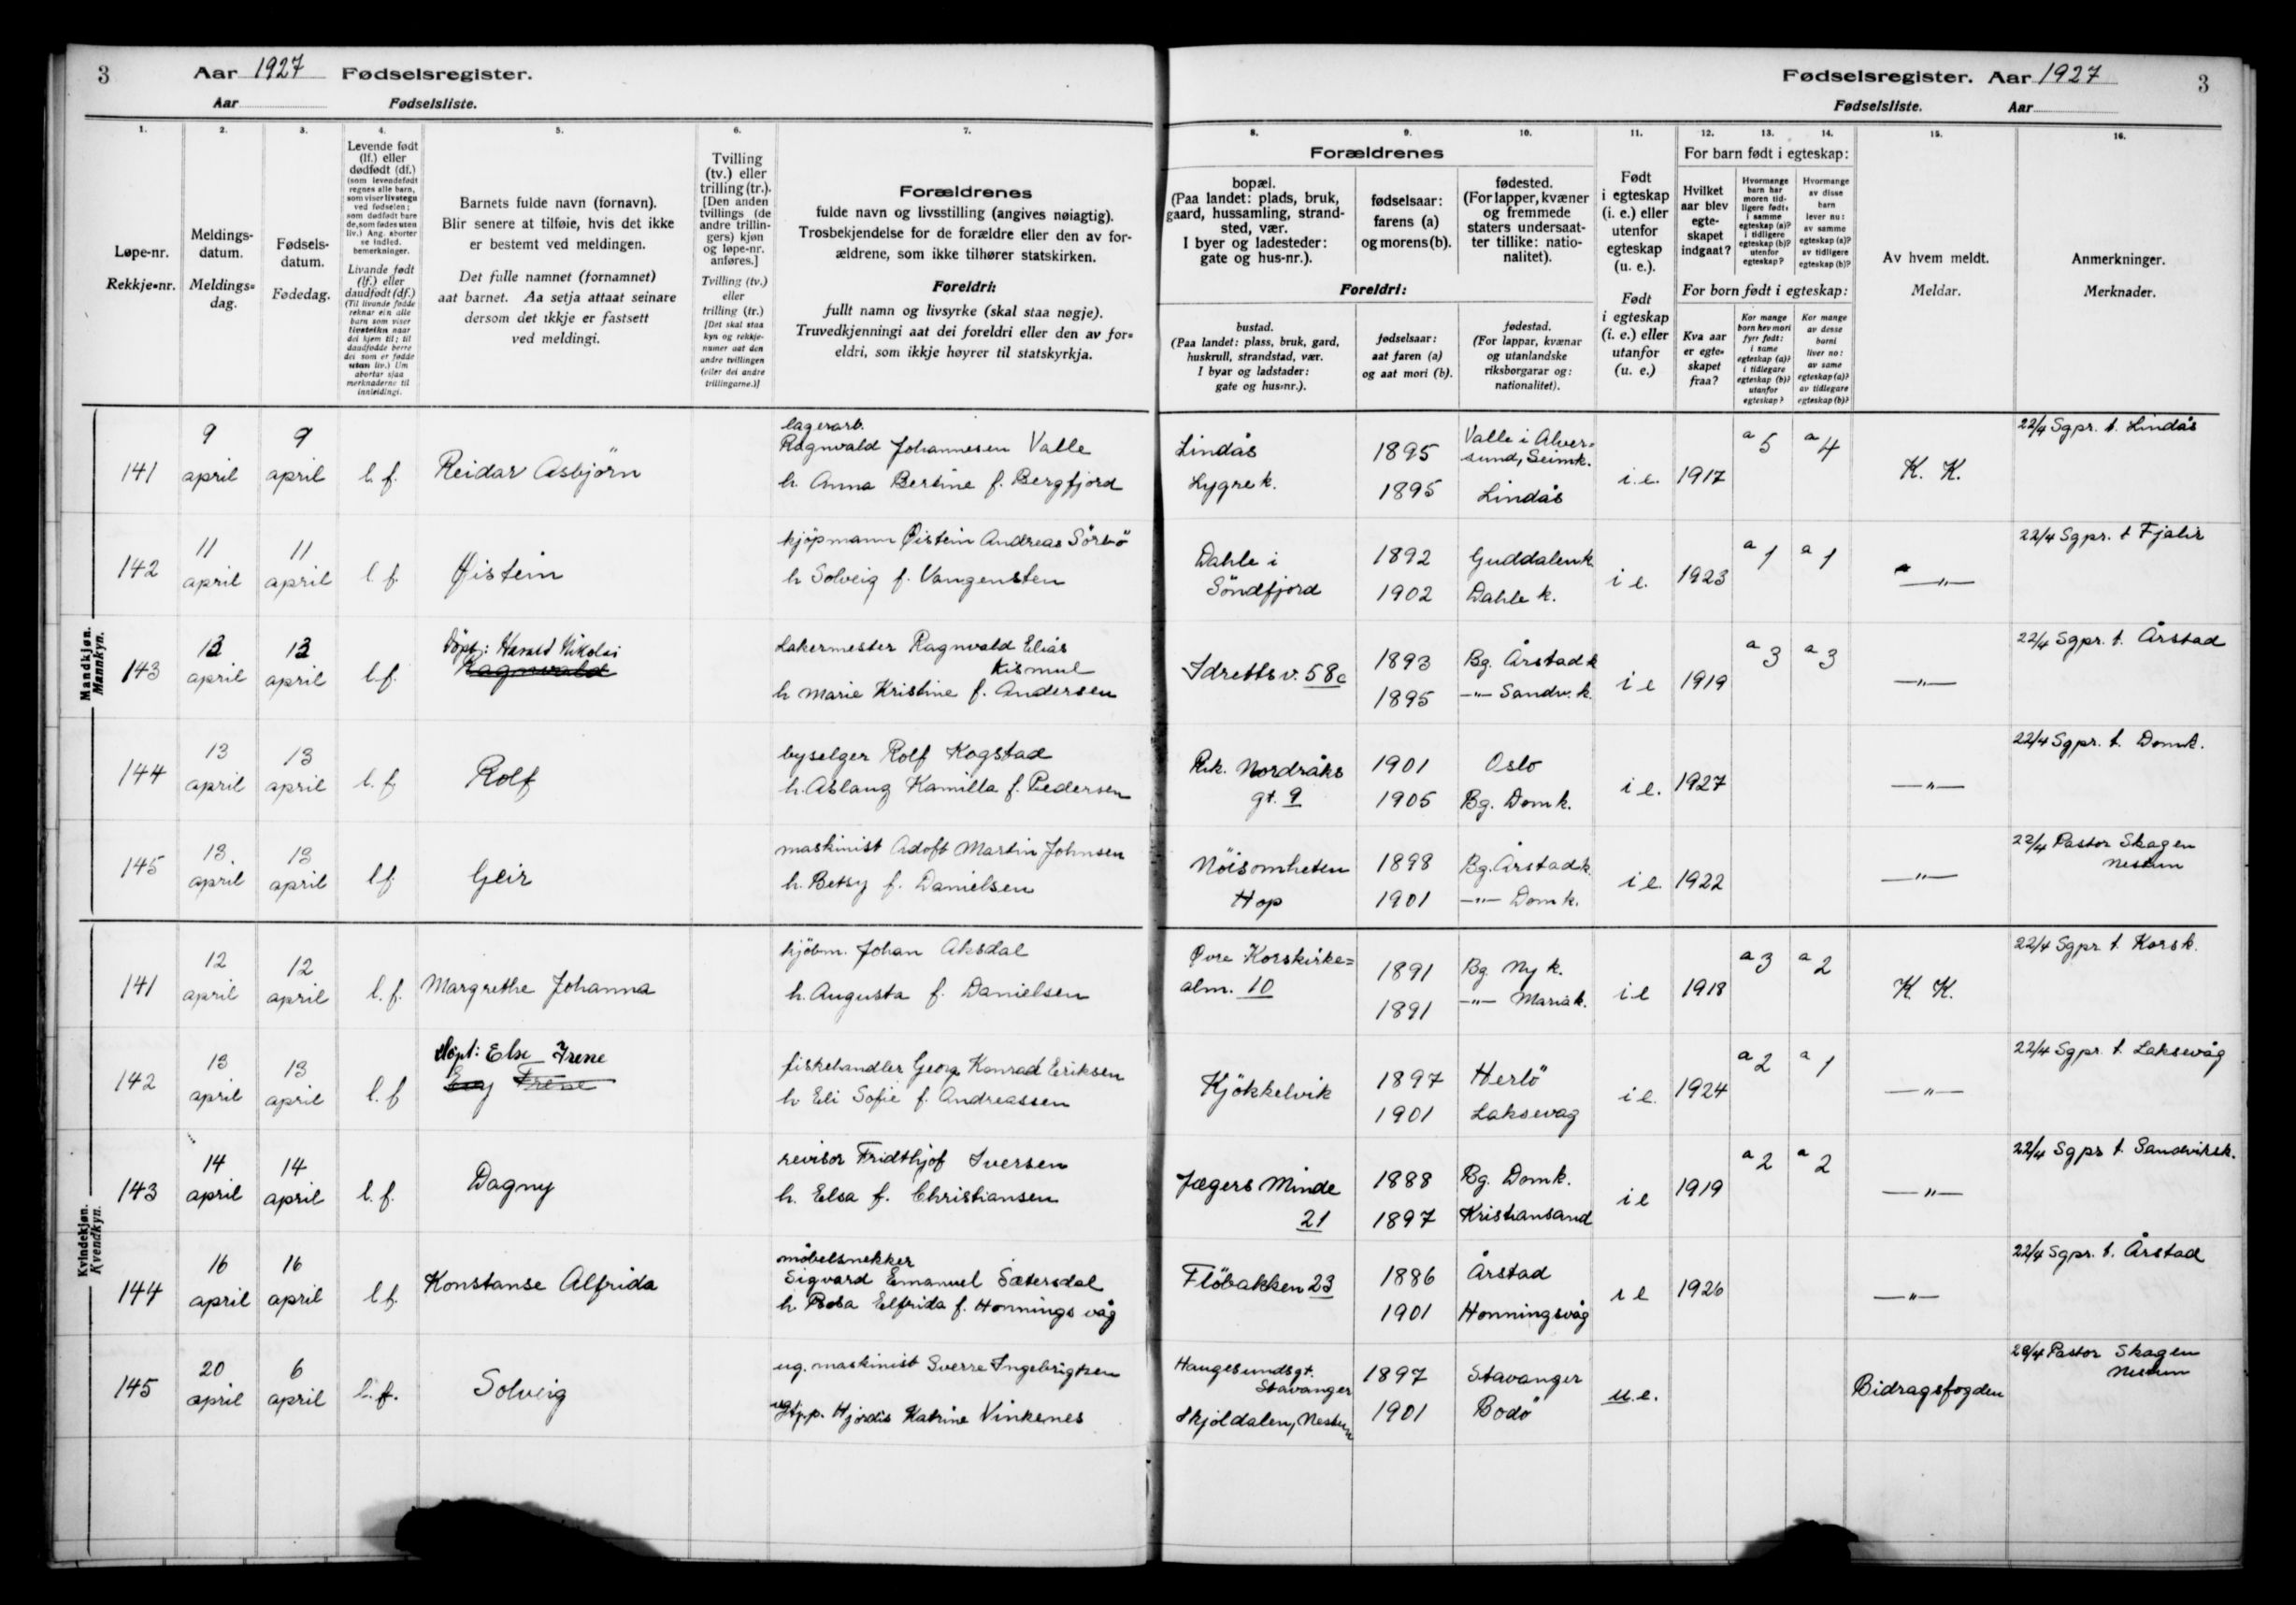 3 Aar 1927 Fødselsregister.
Aar Fødselsliste.
Fødselsregister. Aar 1927 3
Fødselsliste. Aar
1. 2. 3. 4. 5. 6. 7. 8. 9. 10. 11. 12. 13. 14. 15. 16.
Løpe-nr.
Rekkje-nr.
Meldings-
datum.
Meldings-
dag.
Fødsels-
datum.
Fødedag.
Levende født
(lf.) eller
dødfødt (df.)
(som levendefødt
regnes alle barn,
som viser livstegn
ved fødselen;
som dødfødt bare
de, som fødes uten
liv.) Ang. aborter
se indled.
bemerkninger.
Livande født
(lf.) eller
daudfødt (df.)
(Til livande fødde
reknar ein alle
barn som viser
livsteikn naar
dei kjem til; til
daudfødde berre
dei som er fødde
utan liv.) Um
abortar sjaa
merknaderne til
innleidingi.
Barnets fulde navn (fornavn).
Blir senere at tilføie, hvis det ikke
er bestemt ved meldingen.
Det fulle namnet (fornamnet)
aat barnet. Aa setja attaat seinare
dersom det ikkje er fastsett
ved meldingi.
Tvilling
(tv.) eller
trilling (tr.).
[Den anden
tvillings (de
andre trillin-
gers) kjøn
og løpe-nr.
anføres.]
Tvilling (tv.)
eller
trilling (tr.)
[Det skal staa
kyn og rekkje-
numer aat den
andre tvillingen
(eller dei andre
trillingarne.)]
Forældrenes
fulde navn og livsstilling (angives nøiagtig).
Trosbekjendelse for de forældre eller den av for-
ældrene, som ikke tilhører statskirken.
Foreldri:
fullt namn og livsyrke (skal staa nøgje).
Truvedkjenningi aat dei foreldri eller den av for-
eldri, som ikkje høyrer til statskyrkja.
Forældrenes
bopæl.
(Paa landet: plads, bruk,
gaard, hussamling, strand-
sted, vær.
I byer og ladesteder:
gate og hus-nr.).
fødselsaar:
farens (a)
og morens (b).
fødested.
(For lapper, kvæner
og fremmede
staters undersaat-
ter tillike: natio-
nalitet).
Foreldri:
bustad.
(Paa landet: plass, bruk, gard,
huskrull, strandstad, vær.
I byar og ladstader:
gate og hus-nr.).
fødselsaar:
aat faren (a)
og aat mori (b).
fødestad.
(For lappar, kvænar
og utanlandske
riksborgarar og:
nationalitet).
Født
i egteskap
(i. e.) eller
utenfor
egteskap
(u. e.).
Født
i egteskap
(i. e.) eller
utanfor
(u. e.)
For barn født i egteskap:
Hvilket
aar blev
egte-
skapet
indgaat?
Hvormange
barn har
moren tid-
ligere født:
i samme
egteskap (a)?
i tidligere
egteskap (b)?
utenfor
egteskap?
Hvormange
av disse
barn
lever nu:
av samme
egteskap (a)?
av tidligere
egteskap (b)?
For born født i egteskap:
Kva aar
er egte-
skapet
fraa?
Kor mange
born hev mori
fyrr født:
i same
egteskap (a)?
i tidlegare
egteskap (b)?
utanfor
egteskap?
Kor mange
av desse
borni
liver no:
av same
egteskap (a)?
av tidlegare
egteskap (b)?
Av hvem meldt.
Meldar.
Anmerkninger.
Merknader.
Mandkjøn.
Mannkyn.
141 9 april 9 april l. f. Reidar Asbjörn
lagerarb.
Ragnvald Johannesen Valle
h. Anna Bertine f. Bergfjord
Lindås
Lygrek.
1895
1895
Valle i Alver-
sund, Seimk.
Lindås
i. e. 1917 a 5 a 4 K. K. 22/4 Sgpr. t. Lindås
142 11 april 11 april l. f. Øistein
kjöpmann Øistein Andreas Sörbö
h Solveig f. Vangensten
Dahle i
Söndfjord
1892
1902
Guddalenk.
Dahle k.
i e. 1923 a 1 a 1 —"— 22/4 Sgpr. t Fjalir
143 12 april 12 april l.f.
Döpt: Harald Nikolai
Ragnvald
Lakermester Ragnvald Elias
Kismul
h Marie Kristine f. Andersen
Idrettsv. 58c
1893
1895
Bg. Årstad k
—"— Sandv. k.
i e 1919 a 3 a 3 —"— 22/4 Sgpr. t. Årstad
144 13 april 13 april l. f. Rolf
byselger Rolf Kogstad
h. Aslaug Kamilla f. Pedersen
Rik. Nordråks
gt. 9
1901
1905
Oslo
Bg. Domk.
i e. 1927 —"— 22/4 Sgpr. t. Domk.
145 13. april 13 april l f. Geir
maskinist Adolf Martin Johnsen
h. Betsy f. Danielsen
Nöisomheten
Hop
1898
1901
Bg. Årstadk.
—"— Domk.
i e. 1922 —"— 22/4 Pastor Skagen
Nestun
Kvindekjøn.
Kvendkyn.
141 12 april 12 april l. f. Margrethe Johanna
kjöbm. Johan Aksdal
h. Augusta f. Danielsen
Øvre Korskirke=
alm. 10
1891
1891
Bg. Ny k.
—"— Mariak.
i e 1918 a 3 a 2 K. K. 22/4 Sgpr t. Korsk.
142 13 april 13 april l. f
döpt: Else Irene
Irene
fiskehandler Georg Konrad Eriksen
h Eli Sofie f. Andreassen
Kjökkelvik
1897
1901
Herlö
Laksevag
i e. 1924 a 2 a 1 —"— 22/4 Sgpr. t. Laksevåg
143 14 april 14 april l. f. Dagny
revisor Fridthjof Iversen
h. Elsa f. Christiansen
Jægers Minde
21
1888
1897
Bg. Domk.
Kristiansand
i e 1919 a 2 a 2 —"— 22/4 Sgpr t. Sandviksk.
144 16 april 16 april l f. Konstanse Alfrida
möbelsnekker
Sigvard Emanuel Sætersdal
h. Rosa Elfrida f. Honnings våg
Flöbakken 23
1886
1901
Årstad
Honningsvåg
i e 1926 —"— 22/4 Sgpr. t. Årstad
145 20 april 6 april l. f. Solveig
ug. maskinist Sverre Ingebrigtsen
Hjördis Katrine Vinkenes
Haugesundsgt.
Stavanger
Skjoldalen, Nestun
1897
1901
Stavanger
Bodö
u.e. Bidragsfogden 29/4 Pastor Skagen
Nestun